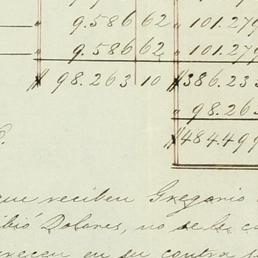 9.586 62 " 101.279
9.586 62 " 101.279
$ 98.263 10 $386.233
" 98.263
$484.499
que reciben Gregorio
Dolores, no se le
en su contra